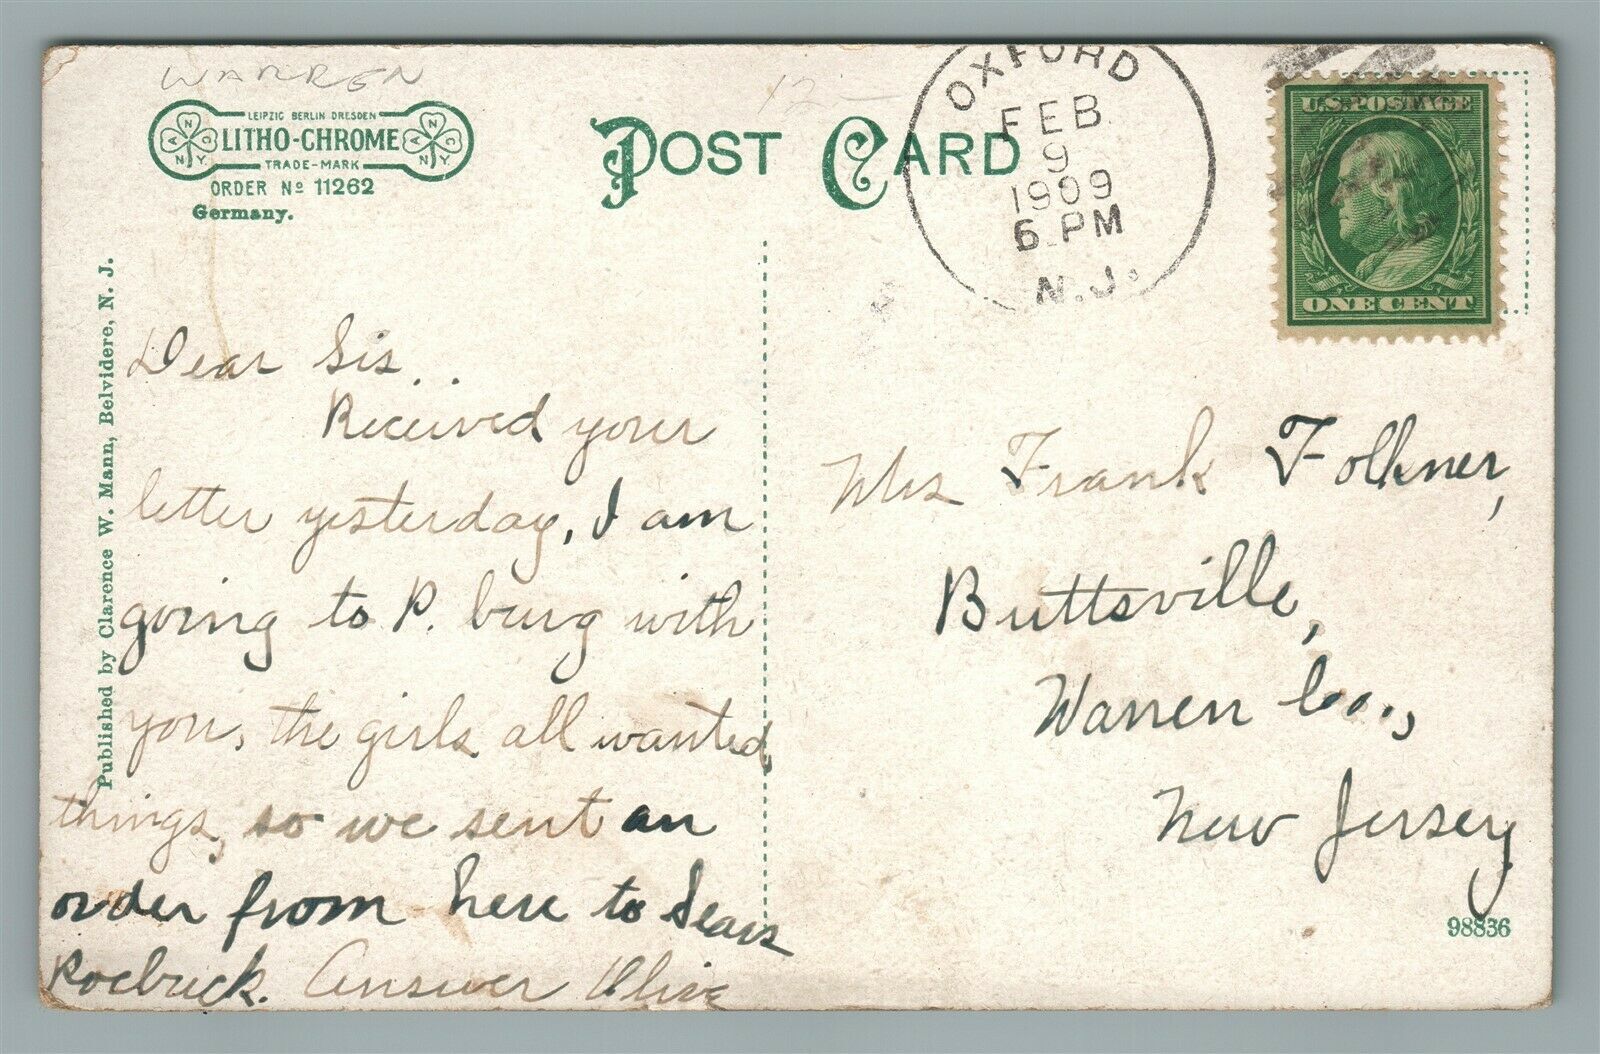 WARREN
12—
LEIPZIG BERLIN DRESDEN
LITHO-CHROME
TRADE-MARK
ORDER No 11262
Germany.
A N N Y.
A N C N Y.
POST CARD
OXFORD
FEB
9
1909
6 PM
N.J.
U.S. POSTAGE
ONE CENT
Published by Clarence W. Mann, Belvidere, N. J.
Dear Sis..
Received your
letter yesterday, I am
going to P. burg with
you, the girls all wanted
things, so we sent an
order from here to Sears
Roebuck. Answer Olive
Mrs Frank Folkner,
Buttsville,
Warren Co.,
New Jersey
98836